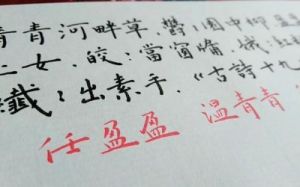 青青河畔草，鬱:園中柳。盈盈
上女，皎:當窗牖。娥:紅
纖:出素手。《古詩十九
任盈盈 溫青青